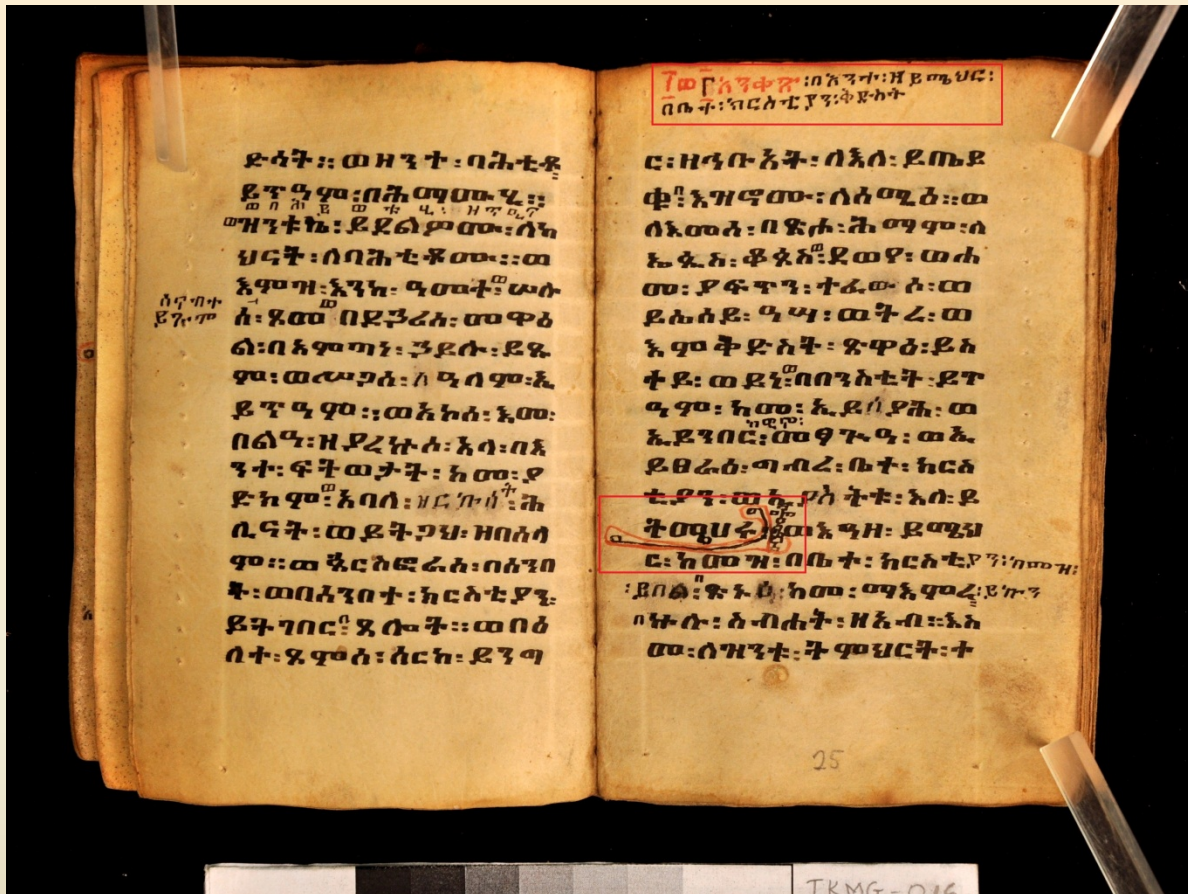 ድሳት። ወዝንተ፡ ባሕቲቶ
ይጥዓም፡ በሕማሙሂ።
ወዝንቱኬ፡ ይደልዎሙ፡ ለካ
ህናት፡ ለባሕቲቶሙ። ወ
እምዝ፡ እንከ፡ ዓመት፡ ሠሉ
ሰናብተ
ይጹም
ስ፡ ጾመ በደኃሪስ፡ መዋዕ
ል፡ በአምጣነ፡ ኃይሉ፡ ይጹ
ም፡ ወሥጋሰ፡ ለዓለም፡ ኢ
ይጥዓም። ወአኮሰ፡ እመ፡
በልዓ፡ ዘያረኩስ፡ አላ፡ በእ
ንተ፡ ፍትወታት፡ ከመ፡ ያ
ድክም፡ አባለ፡ ዝርኩሰት፡ ሕ
ሊናት፡ ወይትጋህ፡ ዝበሰላ
ት፡ ወበሰንበተ፡ ክርስቲያን፡
ይትገበር፡ ጸሎት። ወበዕ
ለተ፡ ጾምሰ፡ ሰርከ፡ ይንግ
፲ወ፫አንቀጽ፡ በእንተ፡ ዘይሜህር፡
በቤተ፡ ክርስቲያን፡ ቅድስት
ር፡ ዘንቡእት፡ ለእለ፡ ይጤይ
ቁ፡ እዝኖሙ፡ ለሰሚዕ። ወ
ለእመሰ፡ በጽሐ፡ ሕማም፡ ለ
ኤጲስ፡ ቆጶስ፡ ደወየ፡ ወሐ
መ፡ ያፍጥን፡ ተፈውሶ፡ ወ
ይሴሰይ፡ ዓሣ፡ ወትረ፡ ወ
እምቅድስት፡ ጽዋዕ፡ ይስ
ተይ፡ ወይነ፡ በበንስቲት፡ ይጥ
ዓም፡ ከመ፡ ኢይሰያሕ፡ ወ
ከዊኖ፡
ኢይንበር፡ መፃጕዓ፡ ወኢ
ይፀራዕ፡ ግብረ፡ ቤተ፡ ክርስ
ቲያን፡ ወኢያስትቱ፡ እለ፡ ይ
ትሜሀሩ፡ ወእዓዘ፡ ይሜህ
ር፡ ከመዝ፡ በቤተ፡ ክርስቲያን፡ ከመዝ፡
፡ይበል፡ ጽኑዕ፡ ከመ፡ ማእምረ፡ ይኩን
በኵሉ፡ ስብሐት፡ ዘአብ። እስ
መ፡ ለዝንቱ፡ ትምህርት፡ ተ
25
TKMG-016